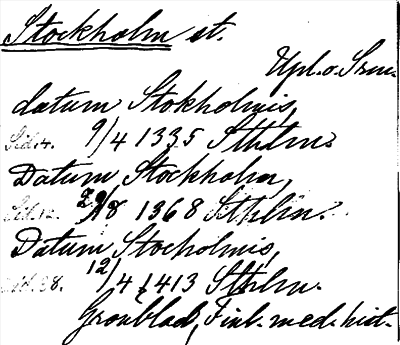 Stockholm st.
Upl. o. Srm.
datum Stokholmis,
Sid. 4. 9/4 1335 Sthlm.
Datum Stockholm,
Sid. 12. 29/8 1368 Sthlm.
Datum Stocholmis,
Sid. 38. 12/4 1413 Sthlm.
Grönblad, Finl. med. hist.